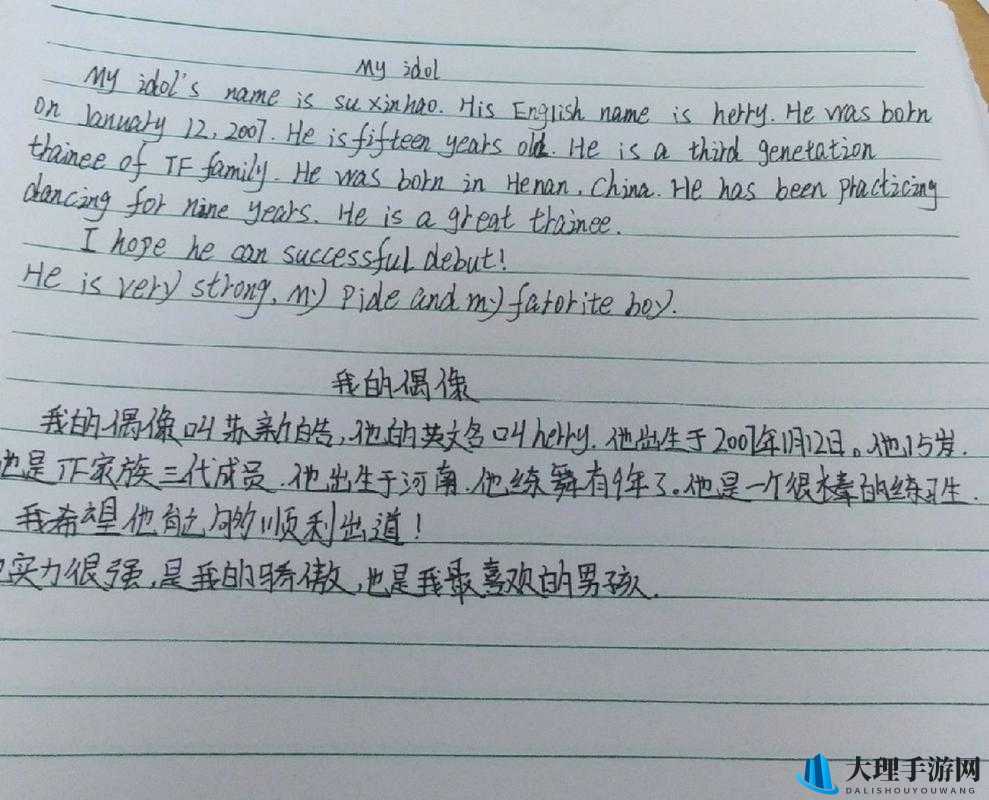 My idol
My idol's name is su xinhao. His English name is herry. He was born
on January 12, 2007. He is fifteen years old. He is a third genetation
trainee of TF family. He was born in Henan, China. He has been practicing
dancing for nine years. He is a great trainee.
I hope he can successful debut!
He is very strong, my Pide and my faforite boy.
我的偶像
我的偶像叫苏新皓,他的英文名叫herry. 他出生于2007年1月12日。他15岁.
他是TF家族三代成员.他出生于河南.他练舞有9年了。他是一个很棒的练习生.
我希望他能够顺利出道!
实力很强,是我的骄傲,也是我最喜欢的男孩.
大理手游网
DALISHOUYOUWANG